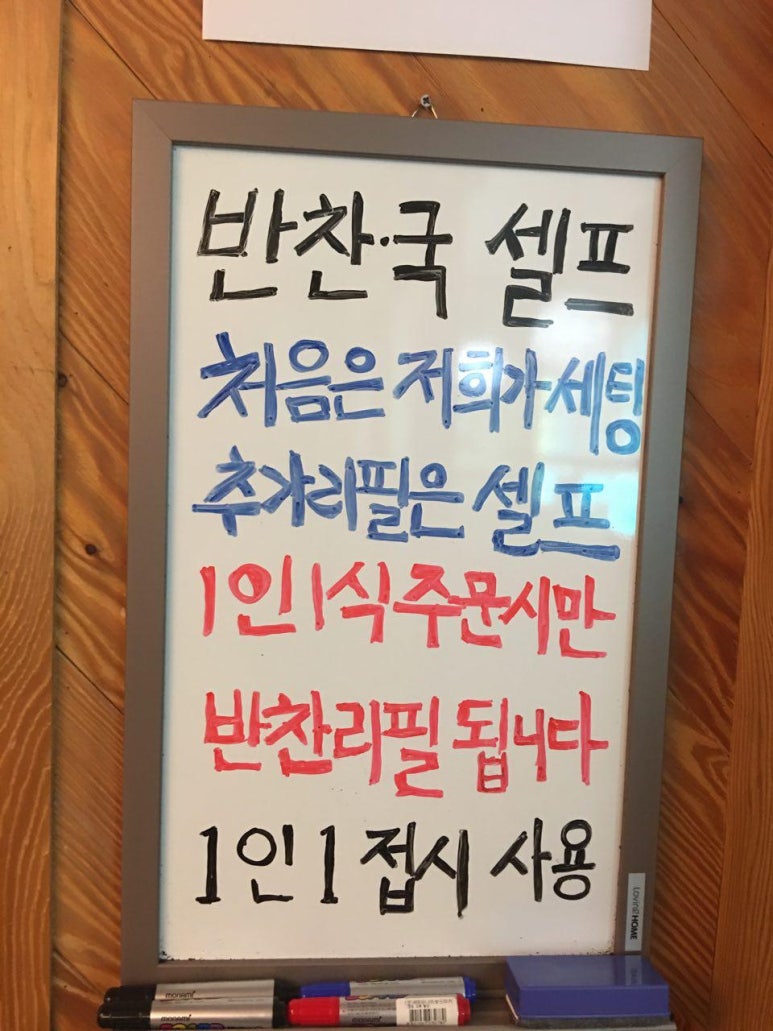 반찬·국 셀프
처음은 저희가 세팅
추가리필은 셀프
1인1식주문시만
반찬리필 됩니다
1인1 접시 사용
LovingHOME
monami
monami